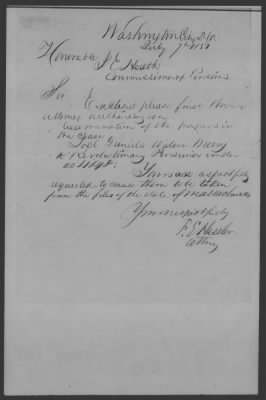 Washington City D.C.
July 7th 1851
Honorable J. E. Heath
Commissioner of Pensions
Sir
Enclosed please find Power
of Attorney authorising an
examination of the papers in
the case
Joel Daniels
a Revolutionary Pensioner under
act
You are respectfully
requested to cause them to be taken
from the files of the State of Massachusetts
Yours respectfully
F. E. Hassler
Atty